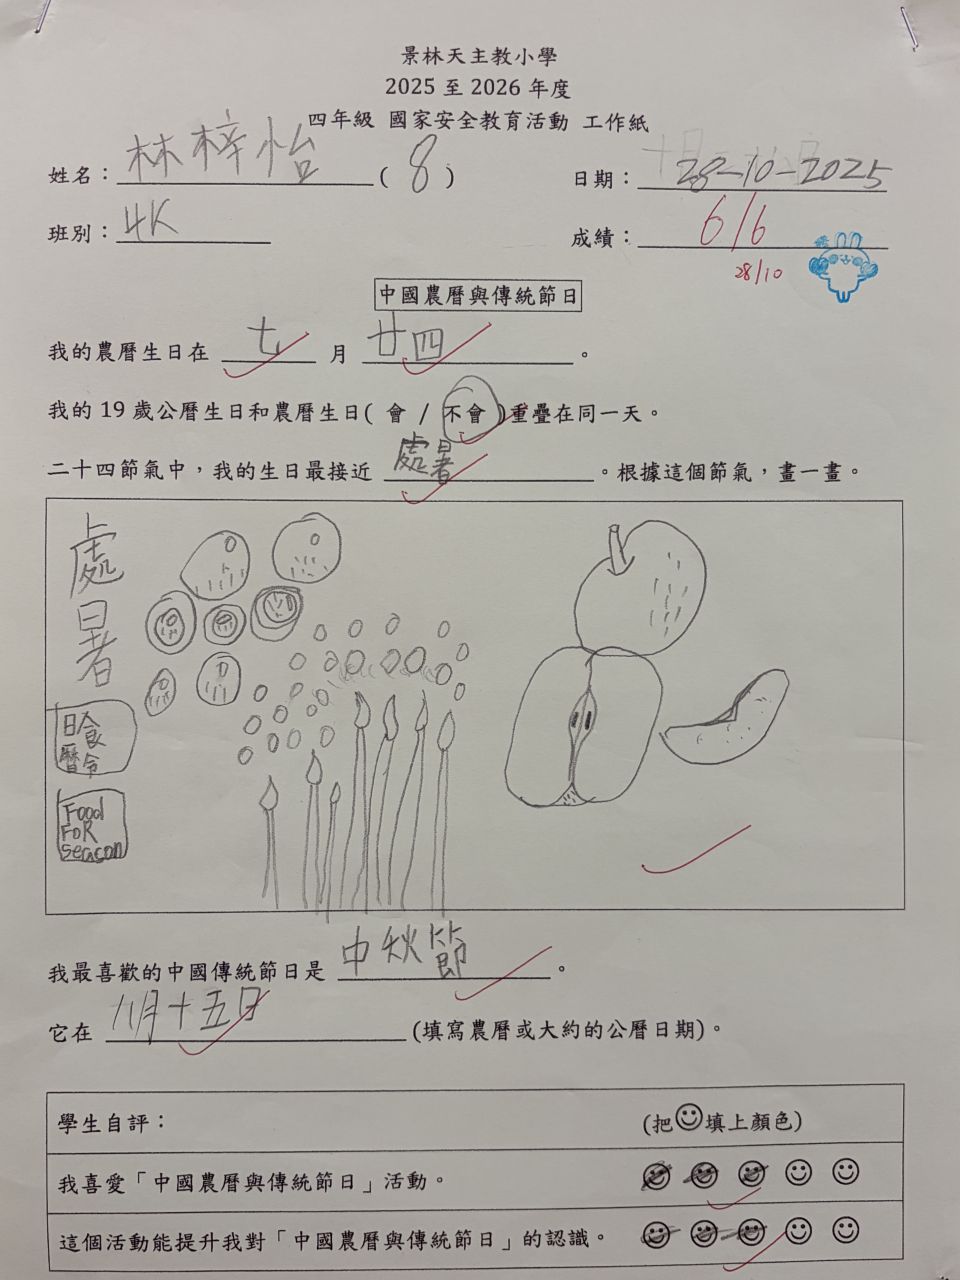 景林天主教小學
2025 至 2026 年度
四年級 國家安全教育活動 工作紙
姓名：林梓怡(8) 日期：28-10-2025
班別：4K 成績：6/6
28/10
中國農曆與傳統節日
我的農曆生日在 七 月 廿四。
我的 19 歲公曆生日和農曆生日( 會 / 不會 )重疊在同一天。
二十四節氣中，我的生日最接近 處暑。根據這個節氣，畫一畫。
處暑
日曆
食令
Food
FoR
Season
我最喜歡的中國傳統節日是 中秋節。
它在 八月十五日 (填寫農曆或大約的公曆日期)。
學生自評： (把☺填上顏色)
我喜愛「中國農曆與傳統節日」活動。
這個活動能提升我對「中國農曆與傳統節日」的認識。